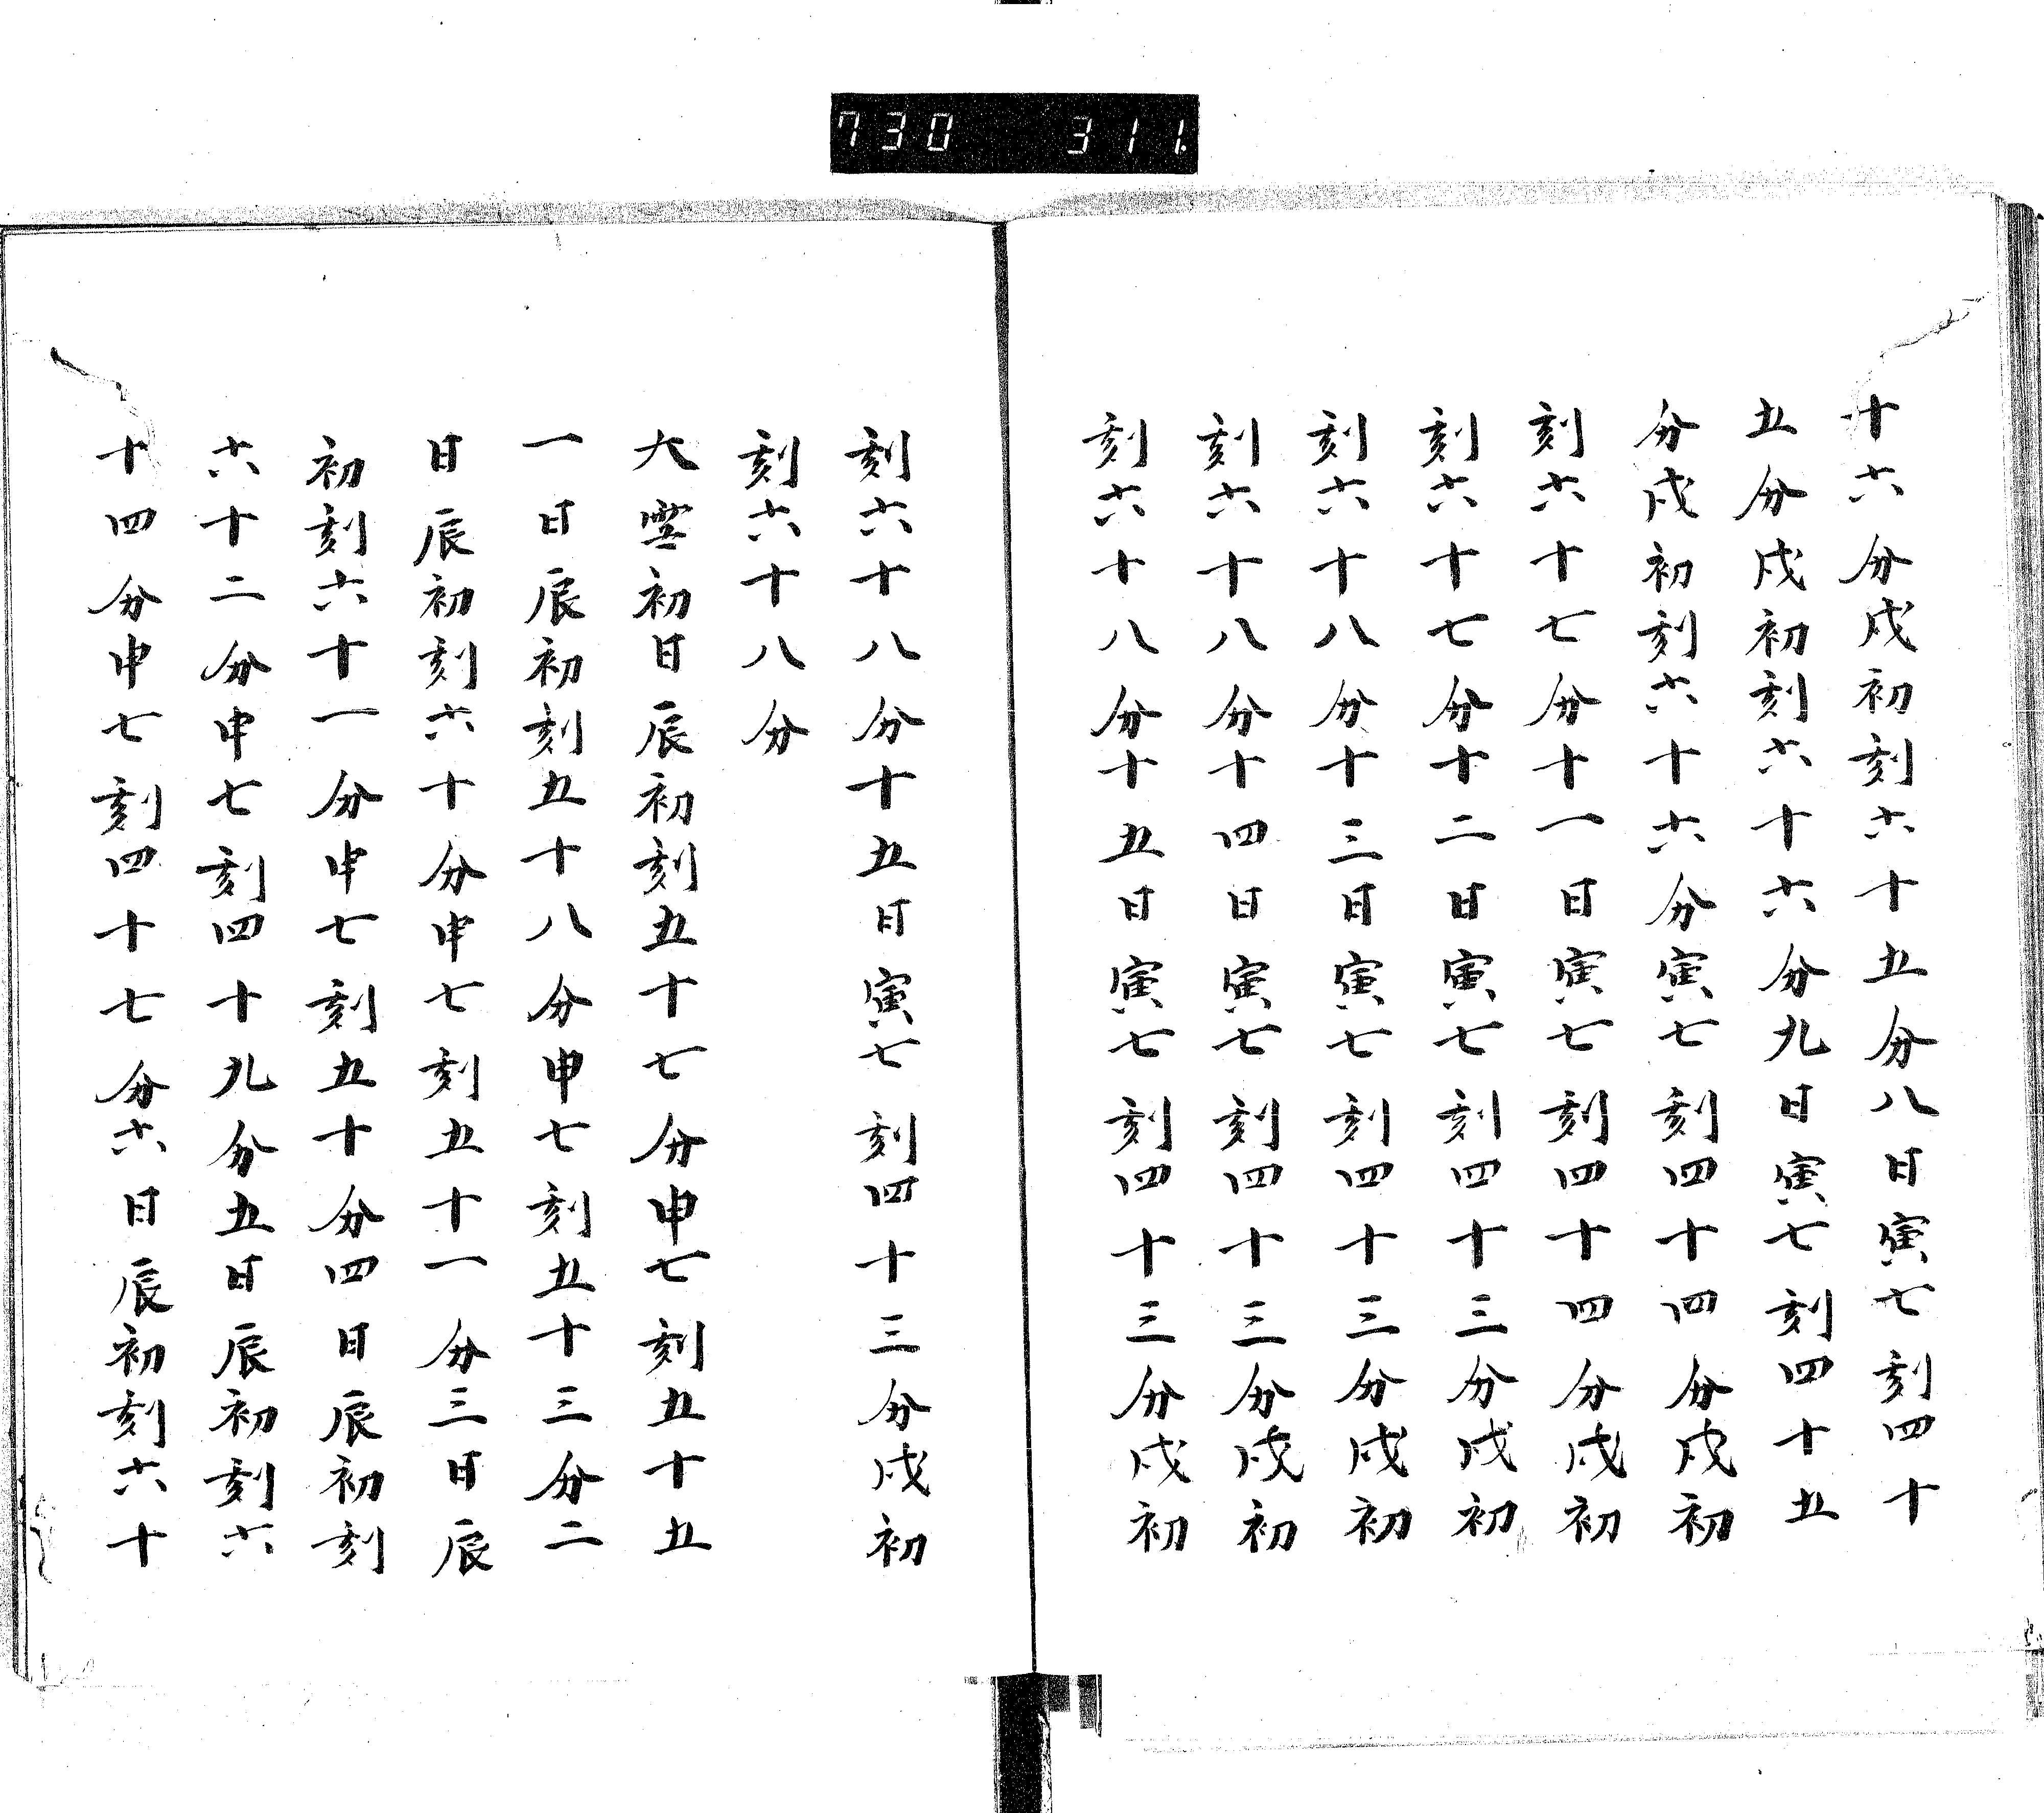 730 311.
十六分戌初刻六十五分八日寅七刻四十
五分戌初刻六十六分九日寅七刻四十五
分戌初刻六十六分寅七刻四十四分戌初
刻六十七分十一日寅七刻四十四分戌初
刻六十七分十二日寅七刻四十三分戌初
刻六十八分十三日寅七刻四十三分戌初
刻六十八分十四日寅七刻四十三分戌初
刻六十八分十五日寅七刻四十三分戌初
刻六十八分十五日寅七刻四十三分戌初
刻六十八分
大雪初日辰初刻五十七分申七刻五十五
一日辰初刻五十八分申七刻五十三分二
日辰初刻六十分申七刻五十一分三日辰
初刻六十一分申七刻五十分四日辰初刻
六十二分申七刻四十九分五日辰初刻六
十四分申七刻四十七分六日辰初刻六十